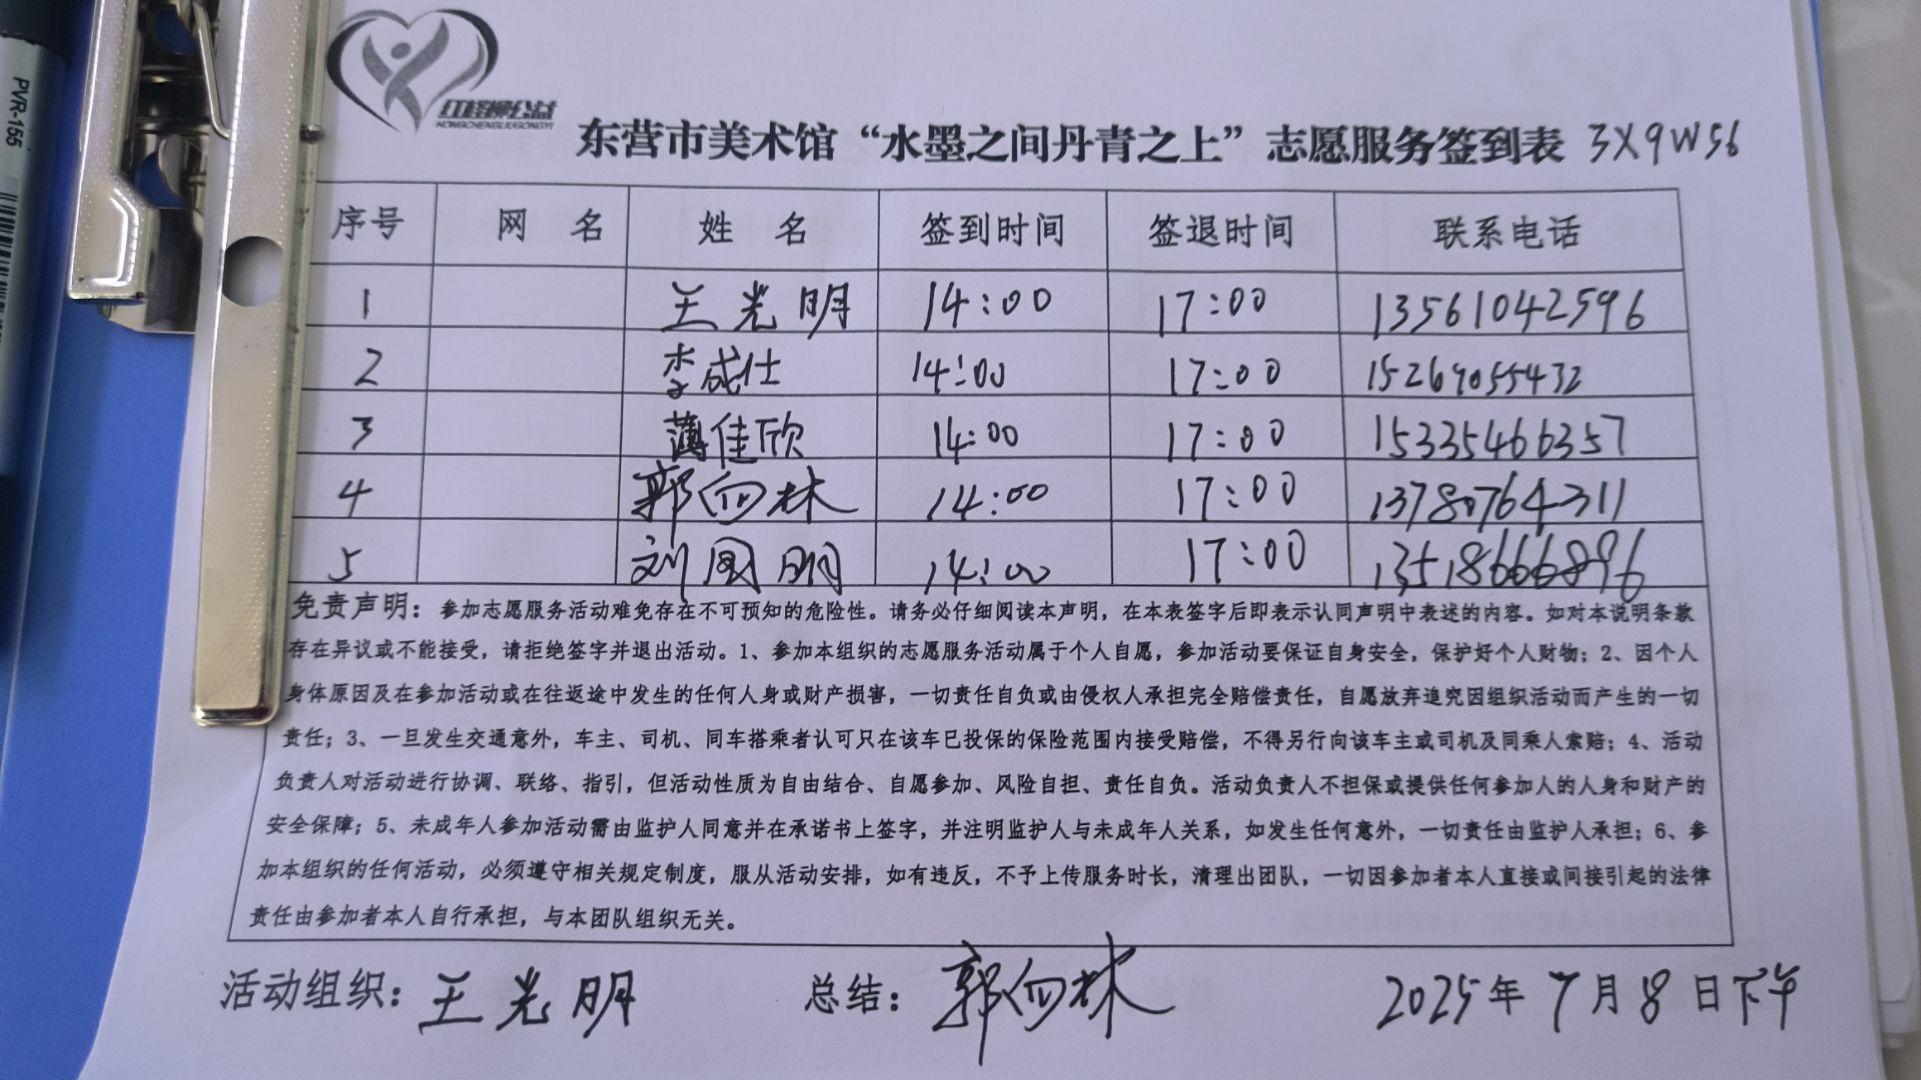 PVR-155
红柽柳公益
HONGCHENGLIUGONGYI
东营市美术馆“水墨之间丹青之上”志愿服务签到表 3X9WS6
序号 网 名 姓 名 签到时间 签退时间 联系电话
1 王光明 14:00 17:00 13561042596
2 李成仕 14:00 17:00 15269055432
3 薄佳欣 14:00 17:00 15335466357
4 郭向林 14:00 17:00 13780764311
5 刘国明 14:00 17:00 13518666896
免责声明：参加志愿服务活动难免存在不可预知的危险性。请务必仔细阅读本声明，在本表签字后即表示认同声明中表述的内容。如对本说明条款
存在异议或不能接受，请拒绝签字并退出活动。1、参加本组织的志愿服务活动属于个人自愿，参加活动要保证自身安全，保护好个人财物；2、因个人
身体原因及在参加活动或在往返途中发生的任何人身或财产损害，一切责任自负或由侵权人承担完全赔偿责任，自愿放弃追究因组织活动而产生的一切
责任；3、一旦发生交通意外，车主、司机、同车搭乘者认可只在该车已投保的保险范围内接受赔偿，不得另行向该车主或司机及同乘人索赔；4、活动
负责人对活动进行协调、联络、指引，但活动性质为自由结合、自愿参加、风险自担、责任自负。活动负责人不担保或提供任何参加人的人身和财产的
安全保障；5、未成年人参加活动需由监护人同意并在承诺书上签字，并注明监护人与未成年人关系，如发生任何意外，一切责任由监护人承担；6、参
加本组织的任何活动，必须遵守相关规定制度，服从活动安排，如有违反，不予上传服务时长，清理出团队，一切因参加者本人直接或间接引起的法律
责任由参加者本人自行承担，与本团队组织无关。
活动组织：王光明 总结：郭向林 2025年7月8日下午